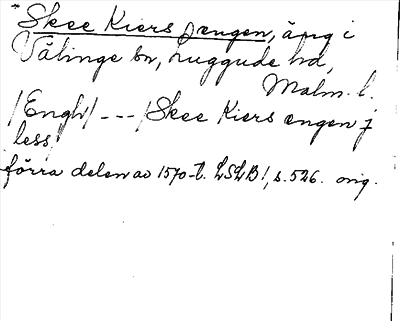 *Skee Kiers ængen, äng i
Välinge sn, Luggude hd,
Malm. l.
/Engh/ --- /Skee Kiers engen j
less/
förra delen av 1570-t. LSLB1, s. 526. orig.